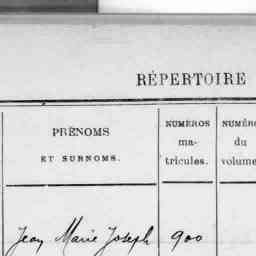 RÉPERTOIRE
PRÉNOMS
ET SURNOMS.
NUMEROS
ma-
tricules.
NUMÉR
du
volume
Jean Marie Joseph 900